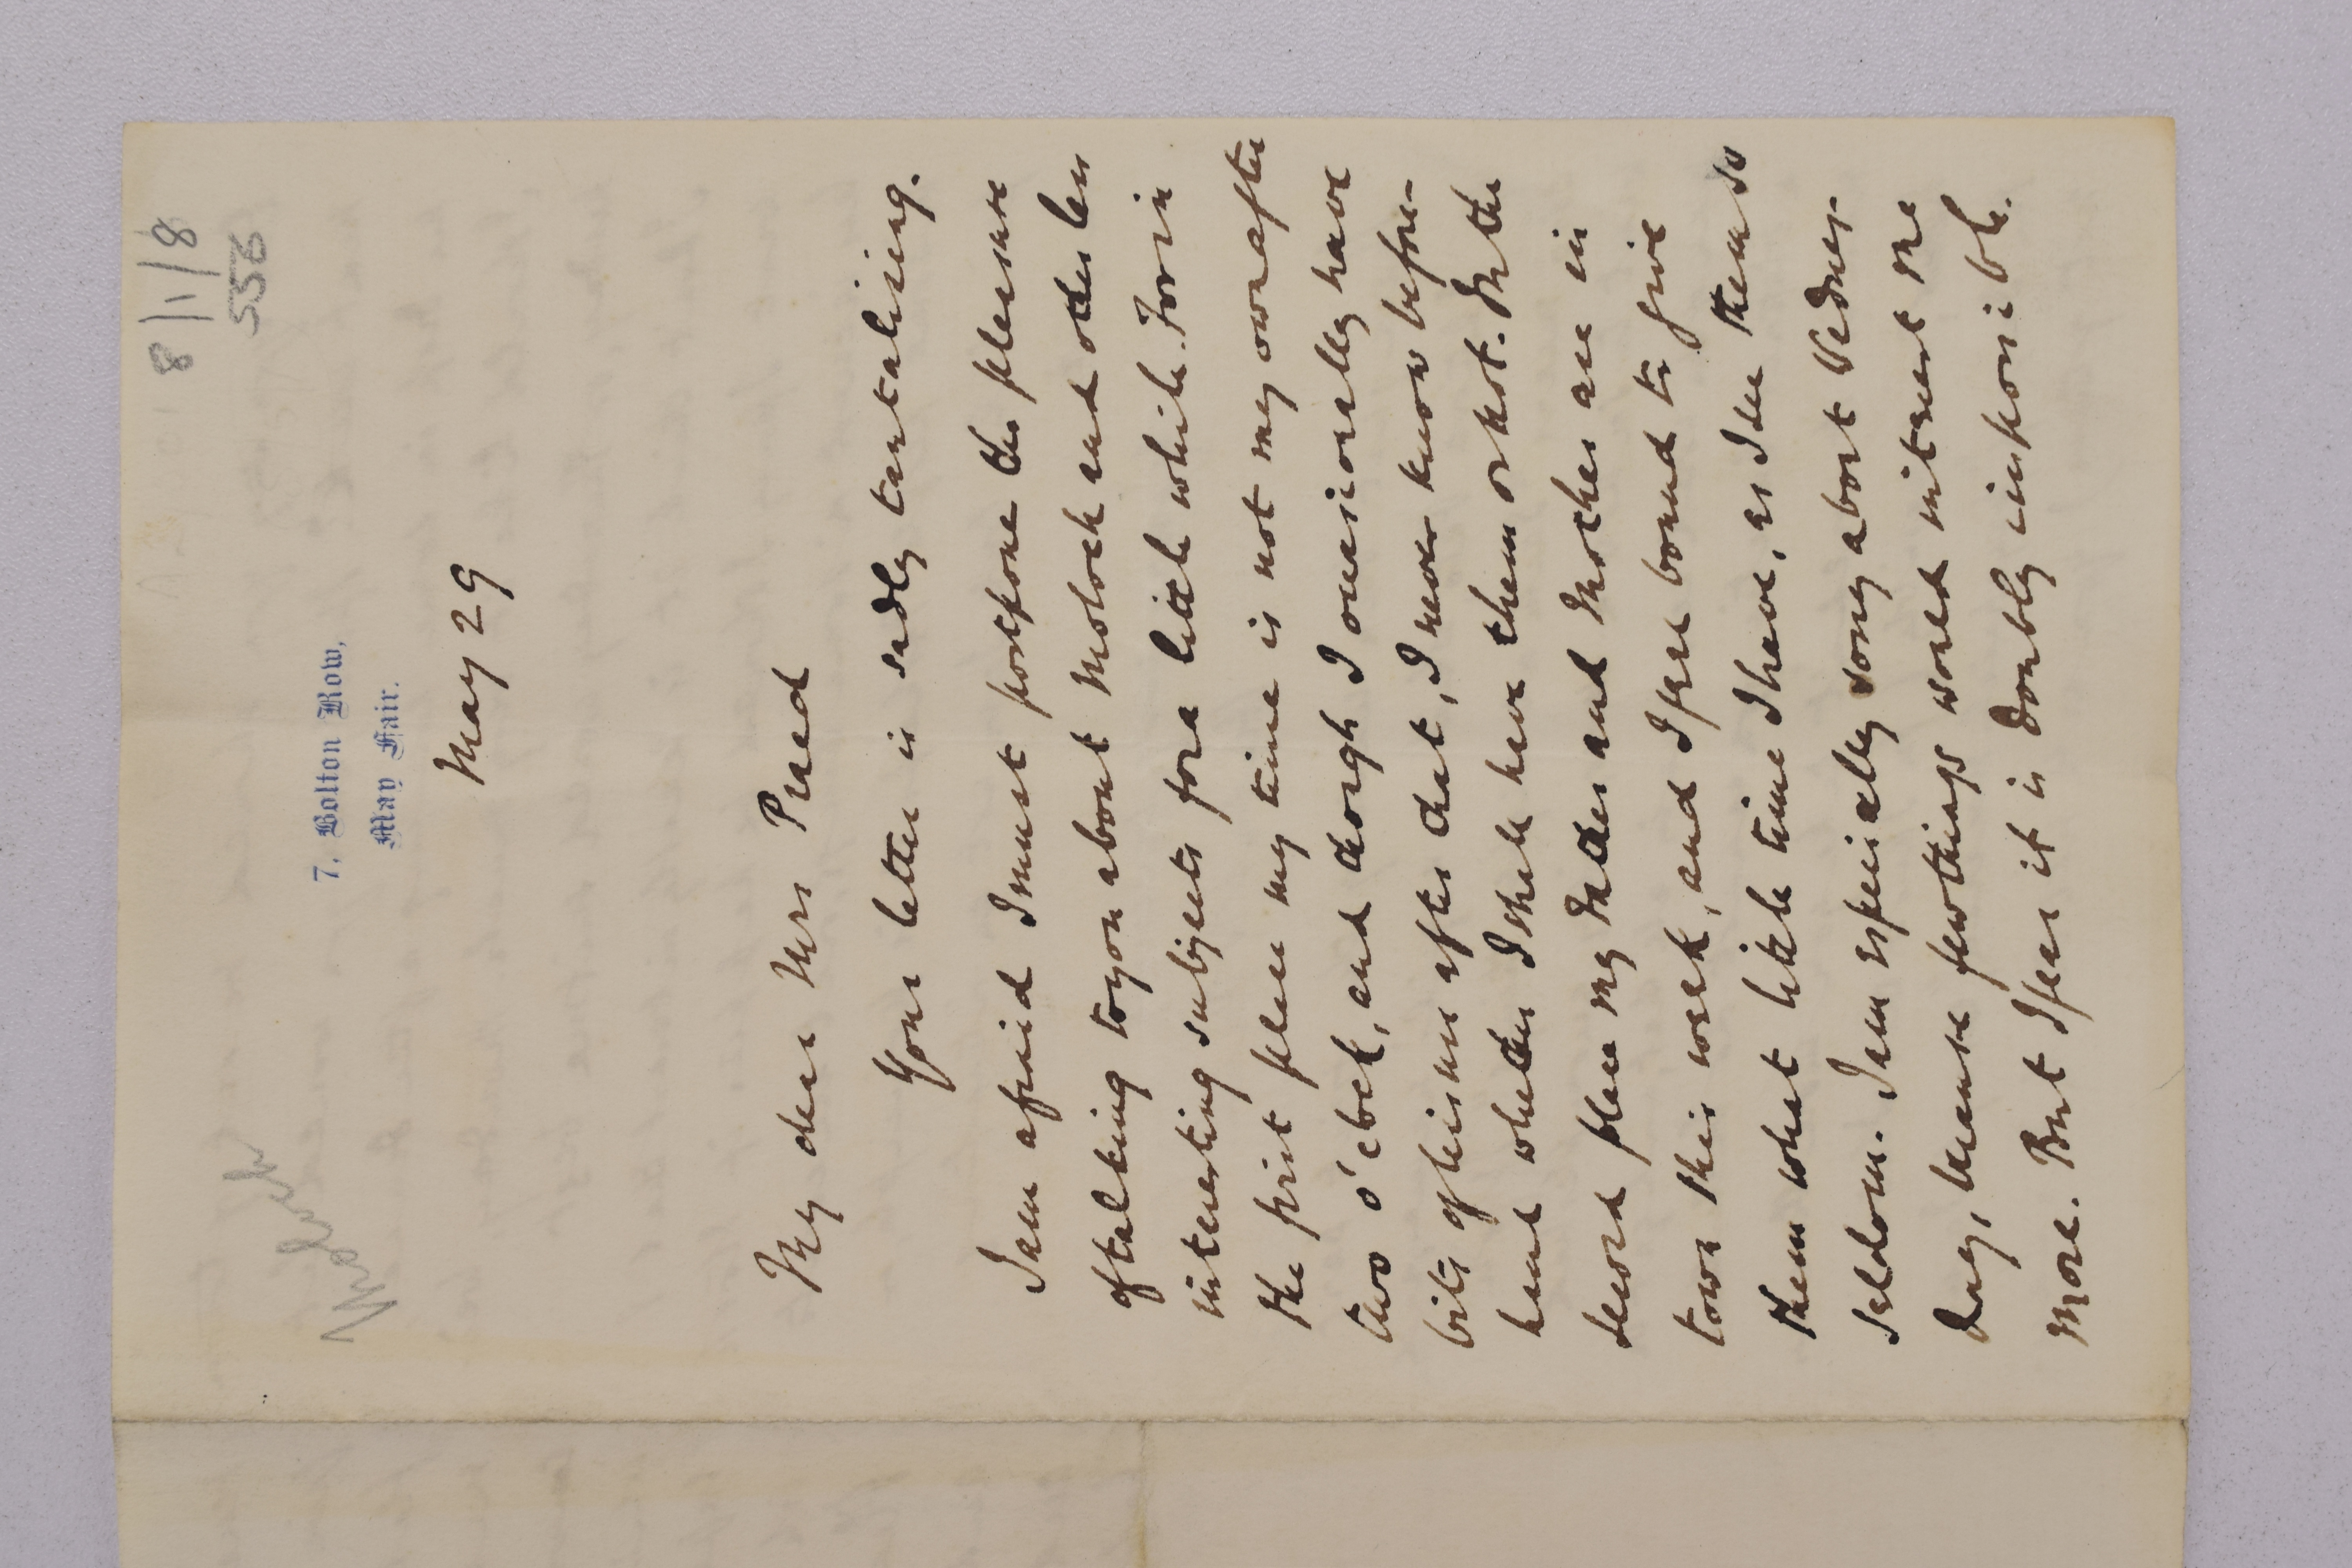 8/1/8
558
Moloch
7, Bolton Row,
May Fair.
May 29
My dear Mrs Praed
Your letter is sadly tantalising.
I am afraid I must postpone the pleasure
of talking to you about Moloch and other less
interesting subjects for a little while. For in
the first place my time is not my own after
two o'clock, and though I occasionally have
bits of leisure after that, I never know before-
hand whether I shall have them or not. In the
second place my Father and Mother are in
town this week, and I feel bound to give
them what little time I have, as I see them so
seldom. I am especially sorry about Wednes-
day, because few things would interest me
more. But I fear it is doubly impossible.